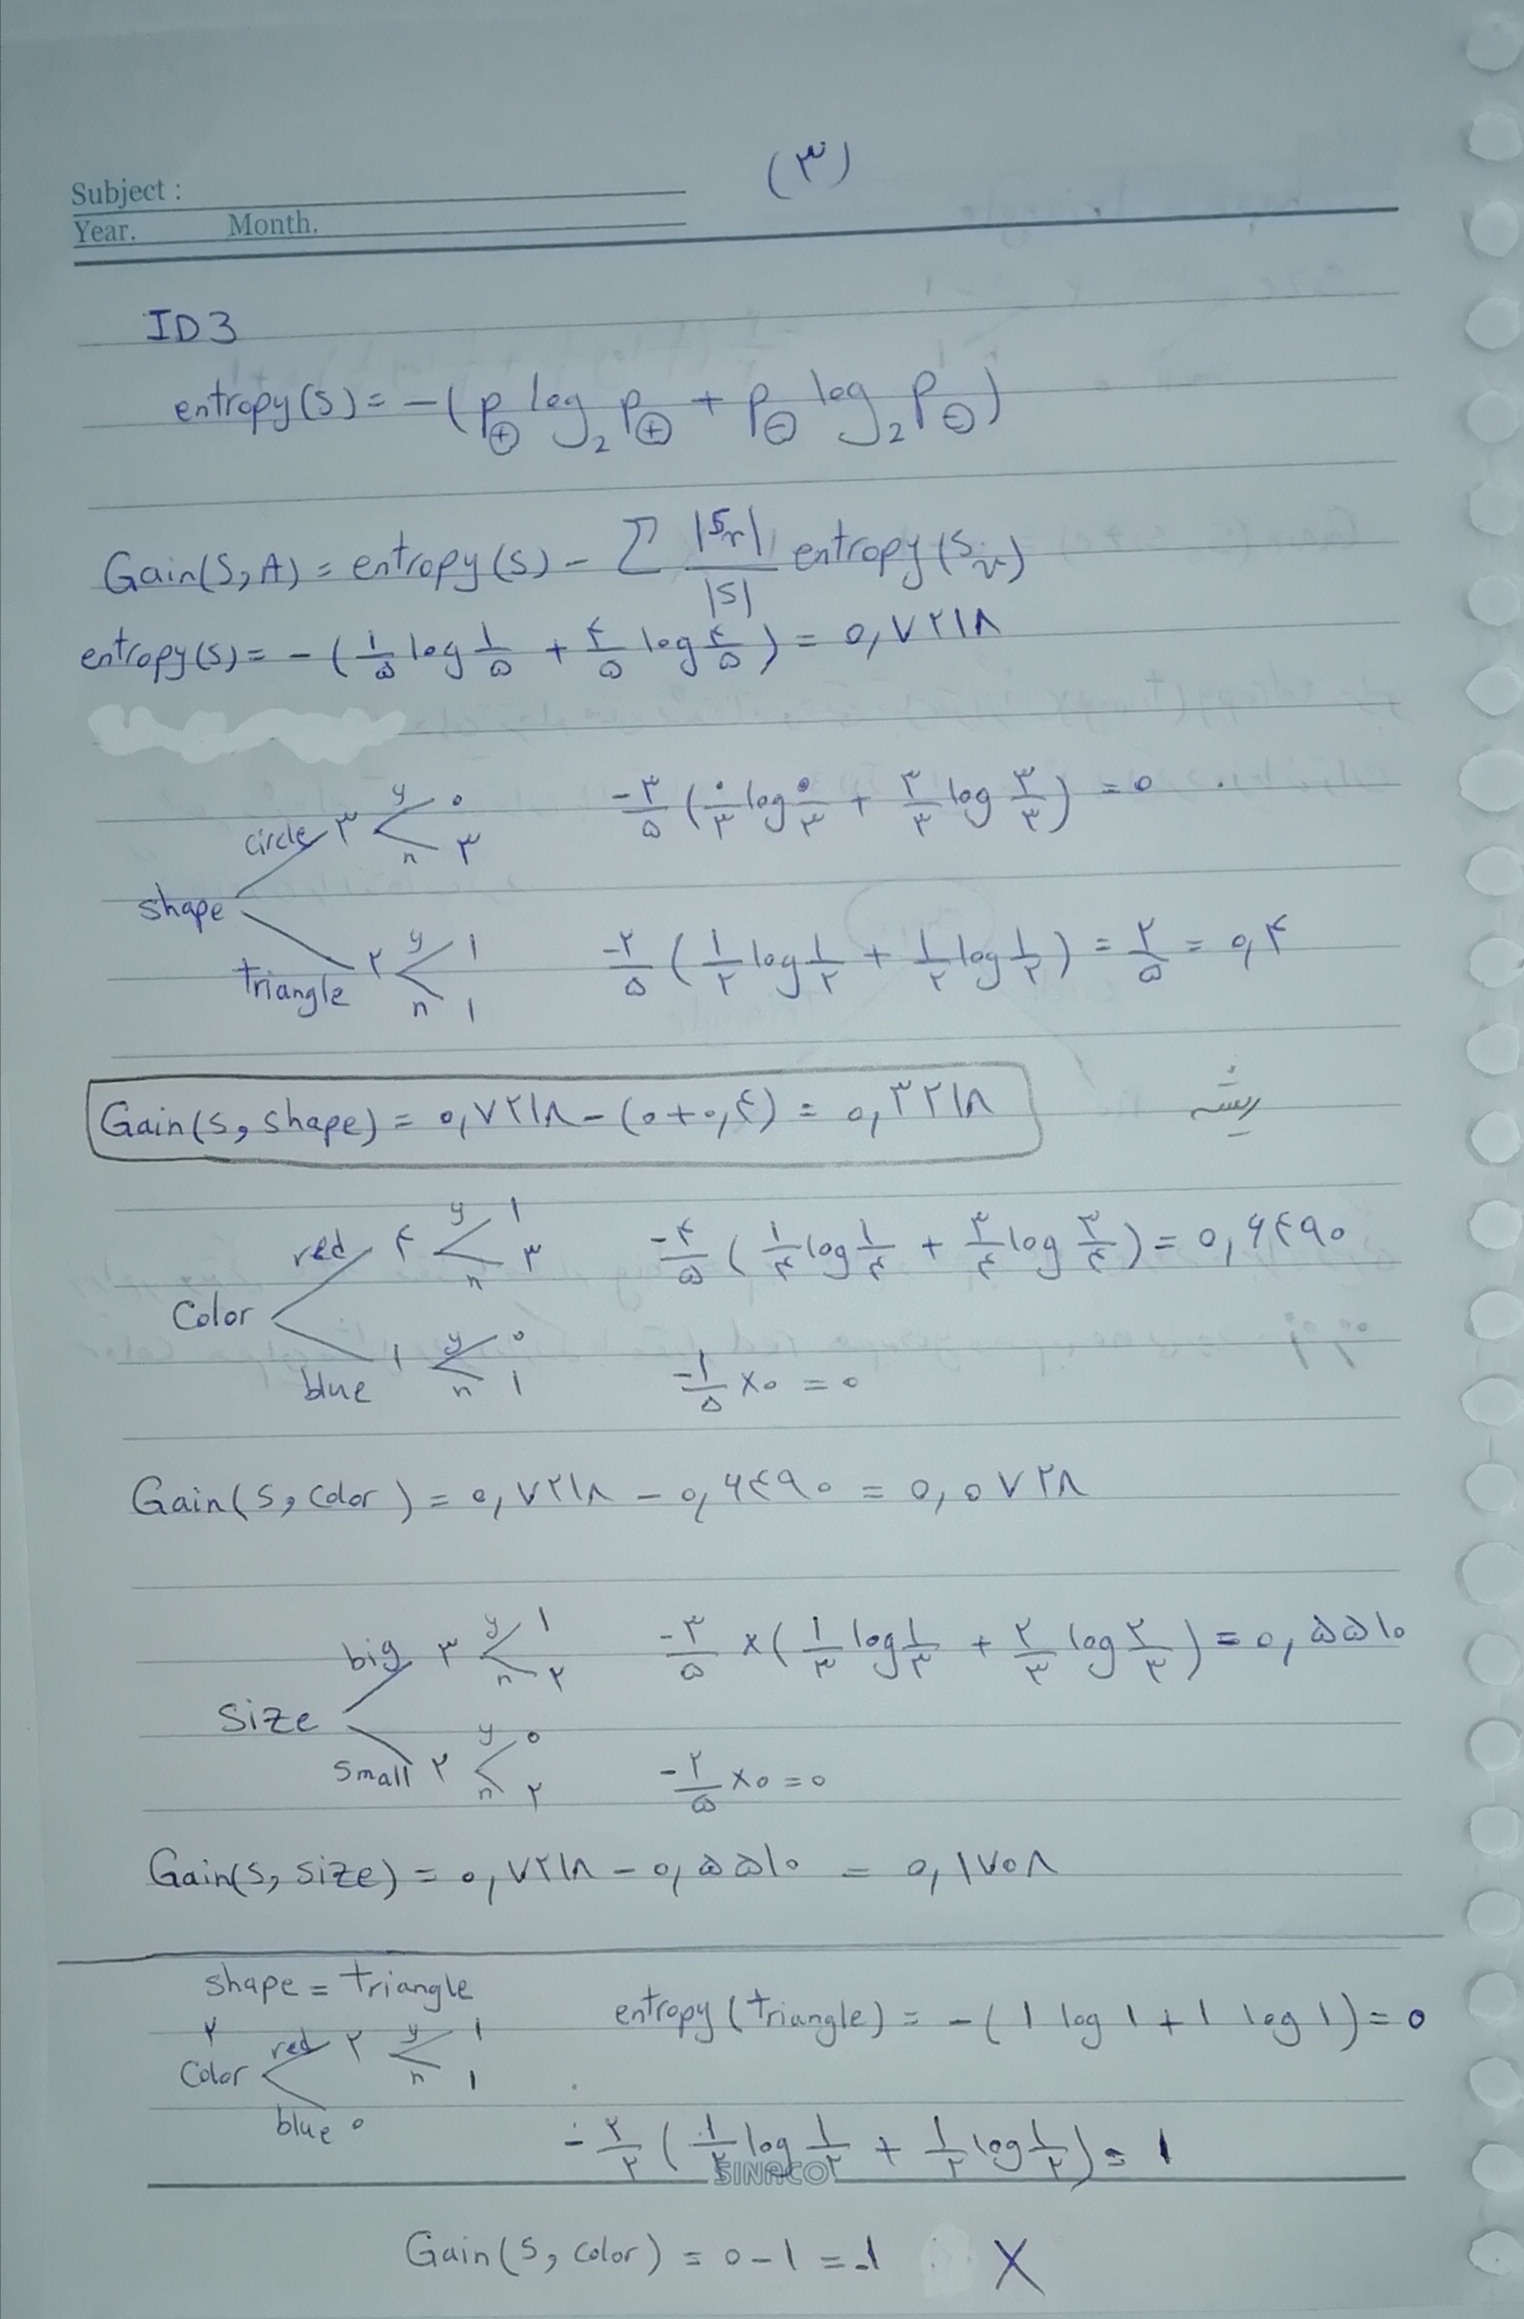 (۳)
Subject :
Year. Month.
ID3
entropy(S) = -(p⊕ log₂ p⊕ + p⊖ log₂ p⊖)
Gain(S, A) = entropy(S) - Σ |Sv|/|S| entropy(Sv)
entropy(S) = -(۱/۵ log ۱/۵ + ۴/۵ log ۴/۵) = ۰,۷۲۱۸
circle ۳ y ۰ n ۳ -۳/۵ (۰/۳ log ۰/۳ + ۳/۳ log ۳/۳) = ۰
shape
triangle ۲ y ۱ n ۱ -۲/۵ (۱/۲ log ۱/۲ + ۱/۲ log ۱/۲) = ۲/۵ = ۰,۴
Gain(S, shape) = ۰,۷۲۱۸ - (۰+۰,۴) = ۰,۳۲۱۸ ریشه
red ۴ y ۱ n ۳ -۴/۵ (۱/۴ log ۱/۴ + ۳/۴ log ۳/۴) = ۰,۶۴۹۰
Color
blue ۱ y ۰ n ۱ -۱/۵ ×۰ = ۰
Gain(S, color) = ۰,۷۲۱۸ - ۰,۶۴۹۰ = ۰,۰۷۲۸
big ۳ y ۱ n ۲ -۳/۵ ×(۱/۳ log ۱/۳ + ۲/۳ log ۲/۳) = ۰,۵۵۱۰
Size
small ۲ y ۰ n ۲ -۲/۵ ×۰ = ۰
Gain(S, size) = ۰,۷۲۱۸ - ۰,۵۵۱۰ = ۰,۱۷۰۸
shape = triangle
entropy(triangle) = -(۱ log ۱ + ۱ log ۱) = ۰
۲
red ۲ y ۱ n ۱
Color
blue ۰
-۲/۲ (۱/۲ log ۱/۲ + ۱/۲ log ۱/۲) = ۱
SINACO
Gain(S, color) = ۰-۱ = -۱ X